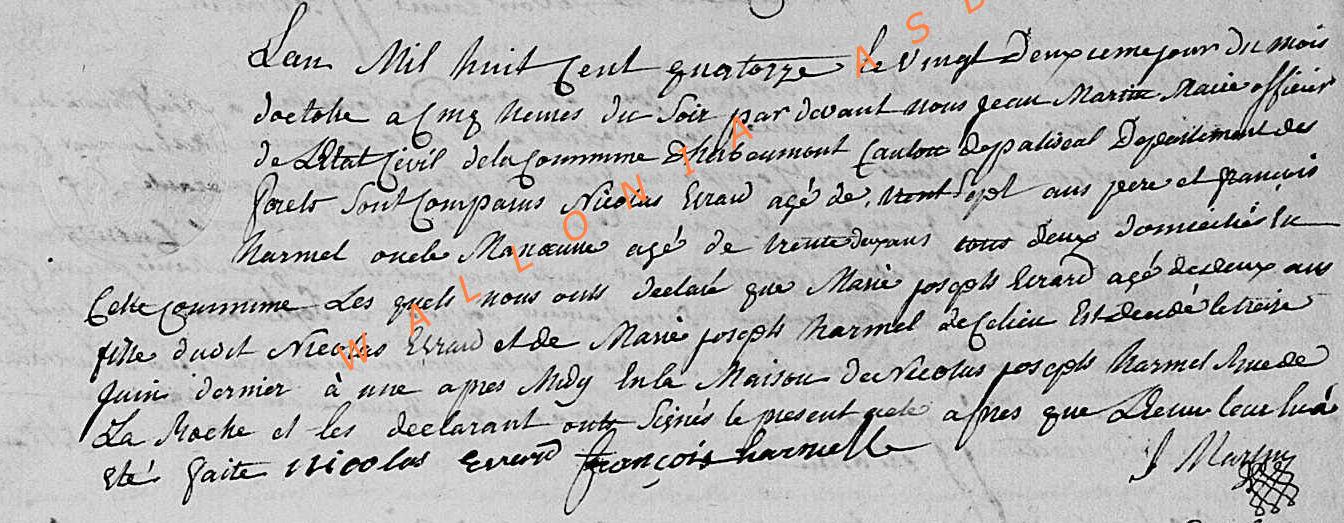 Lan Mil huit Cent quatorze le vingt deuxieme jour du mois
doctobre a Cinq heures du Soir par devant nous jean Martin Maire officier
de LEtat Civil dela Commune Dherbeumont Canton depaliseal Departement des
forets Sont Comparus Nicolas Evrard agé de trent Sept ans pere et françois
harmel oncle Manœuvre agé de trente deux ans tous deux domiciliés En
Cette Commune Les quels nous onts declaré que Marie joseph Evrard agé de deux ans
fille dudit Nicolas Evrard et de Marie joseph harmel de Celieu Est decedé le treise
Juin dernier à une apres Midy En la Maison de Nicolas joseph harmel Rue de
La Roche et les declarant onts Signés le present acte apres que Lecture leur En a
Eté faite Nicolas Evrard françois harmelle
J Martin
WALLONIA ASB